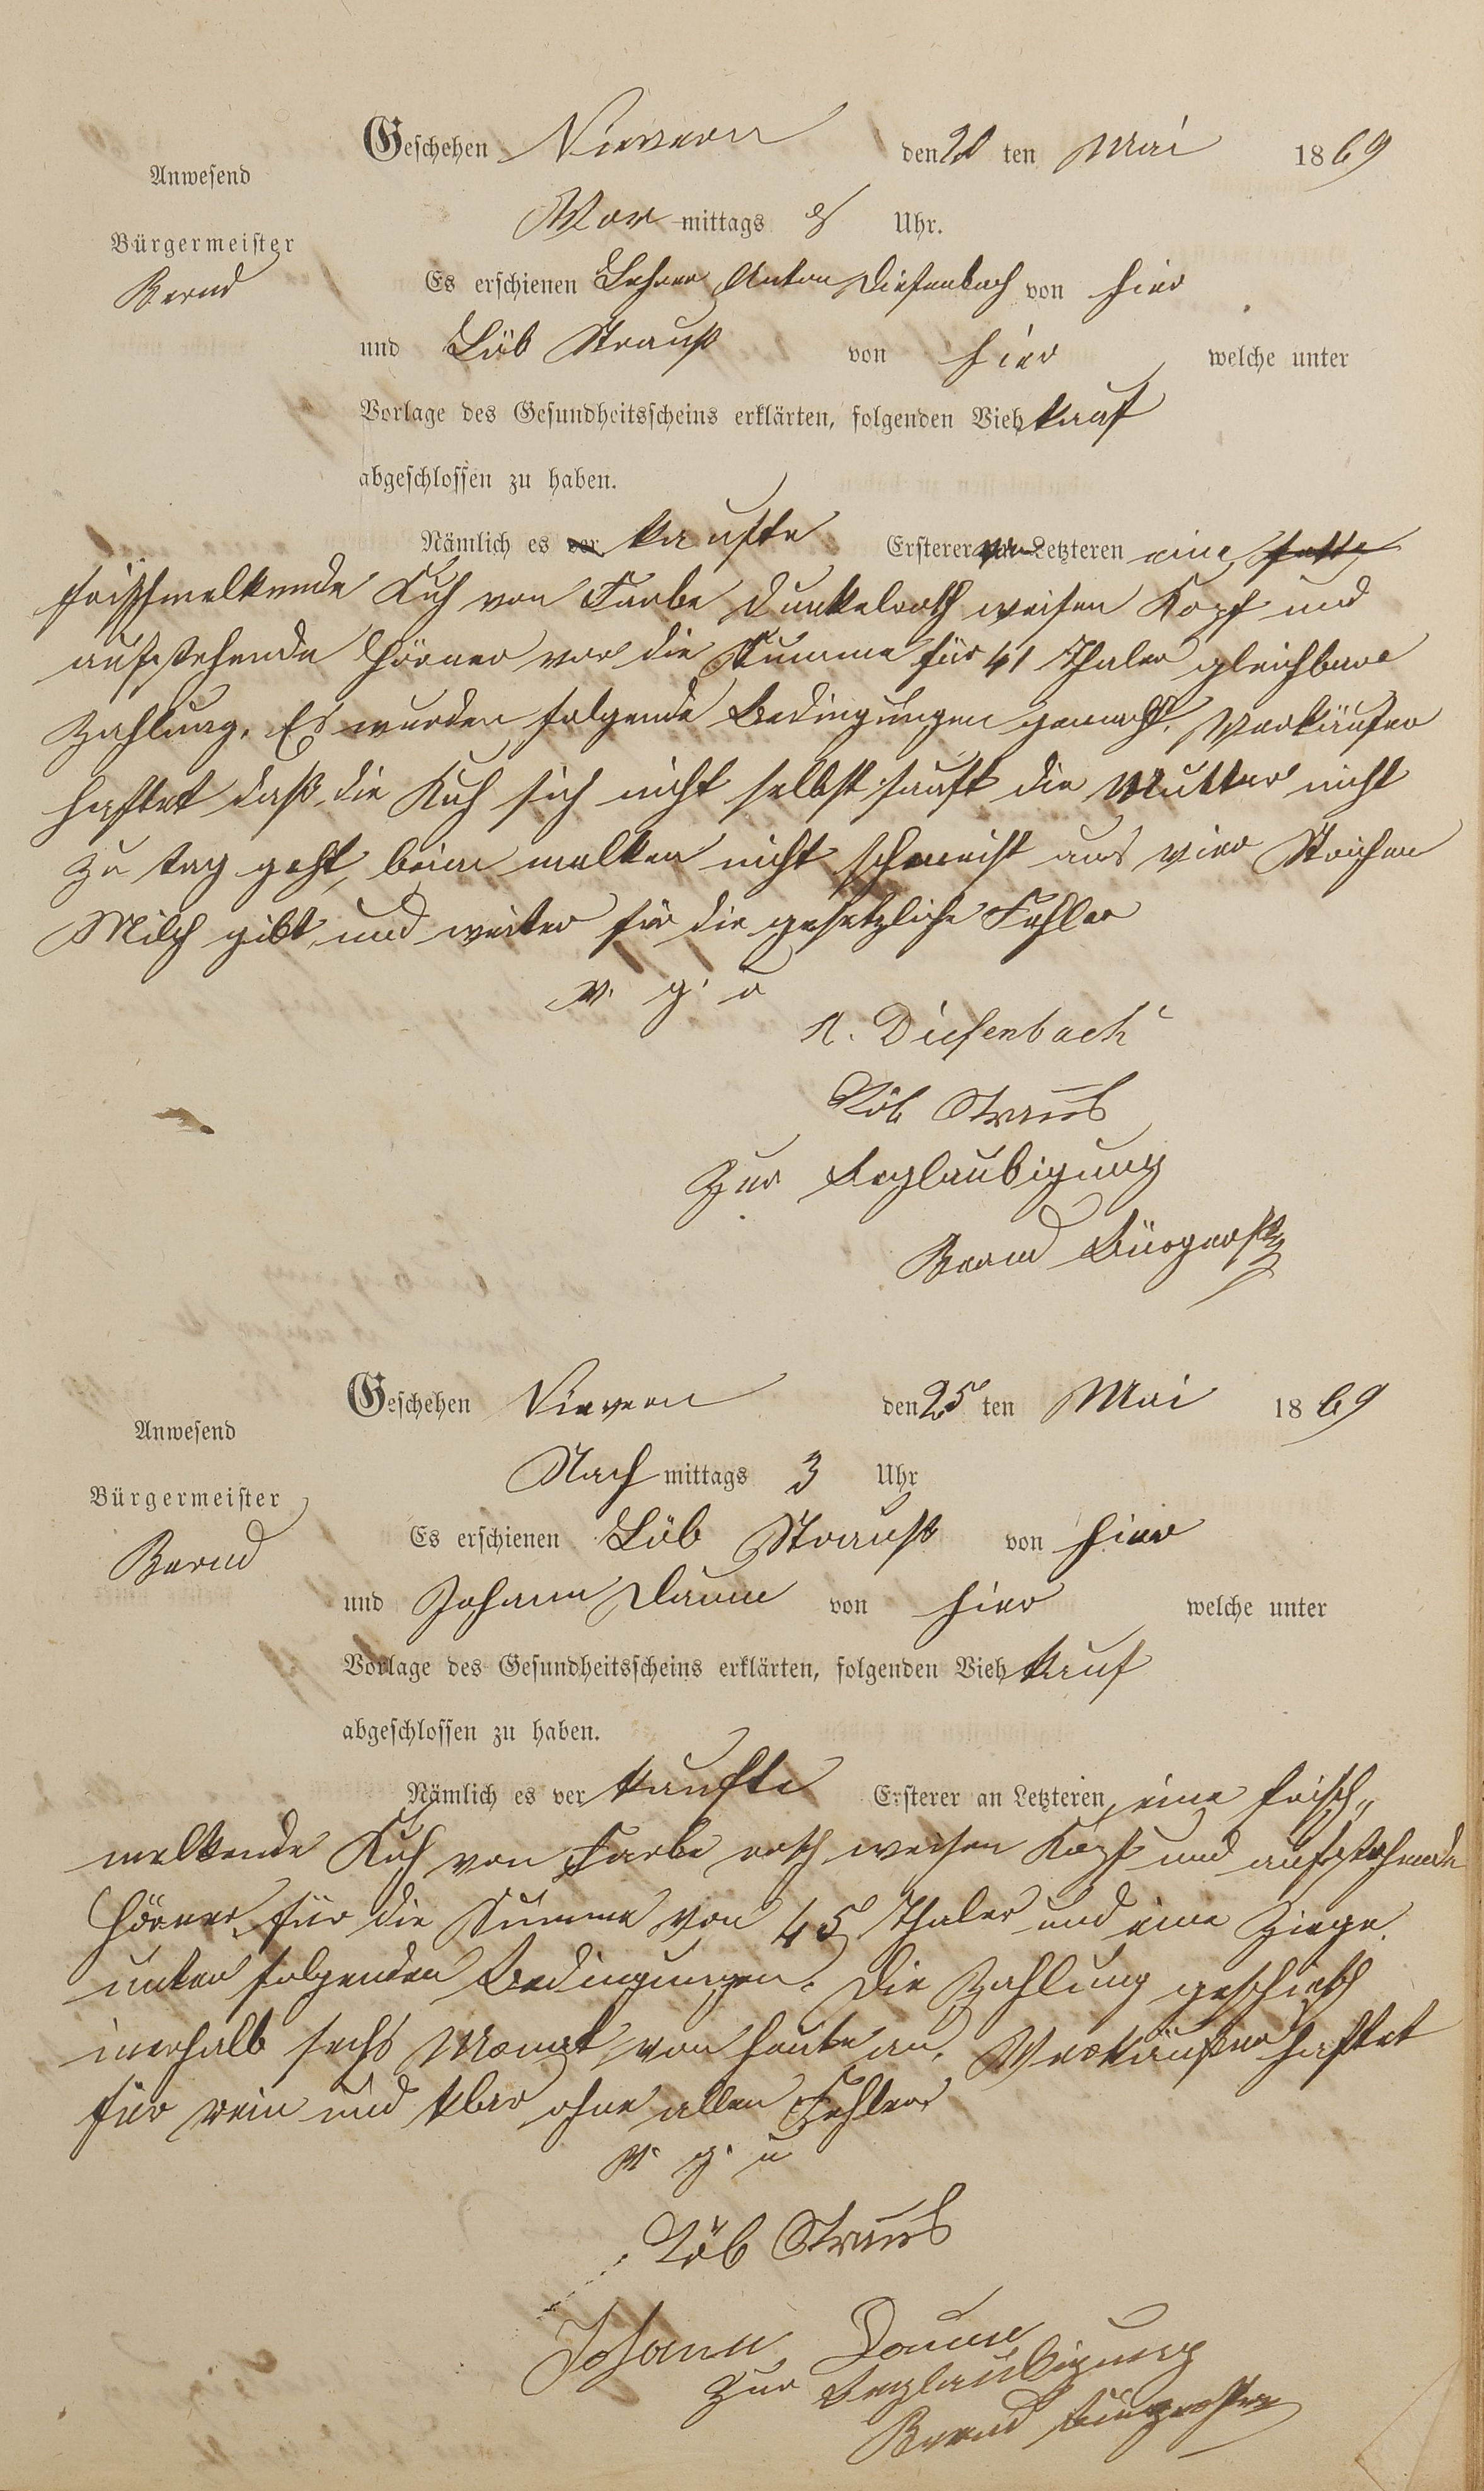 Geschehen Nievern den 20 ten Mai 1869
Anwesend
Vor mittags 8 Uhr.
Bürgermeister
Bernd
Es erschienen Lehrer Anton Diefenbach von hier
und Löb Strauß von hier welche unter
Vorlage des Gesundheitsscheins erklärten, folgenden Viehkauf
abgeschlossen zu haben.
Nämlich es ver kaufte Ersterer Letzteren eine fette
frischmelkende Kuh von Farbe dunkelroth weisen Kopf und
aufstehende Hörner vor die Summe für 41 Thaler gleichbare
Zahlung. Es wurden folgende Bedingungen gemacht. Verkäufer
haftet daß die Kuh sich nicht selbst sauft die Mutter nicht
zu tag geht, beim melken nicht schmeist aus vier Strichen
Milch gibt, und weiter für die gesetzliche Fehler
v. g. u
A. Diefenbach
Löb Straus
Zur Beglaubigung
Bernd Bürgerstr
Geschehen Nievern den 25 ten Mai 1869
Anwesend
Nach mittags 3 Uhr
Bürgermeister
Bernd
Es erschienen Löb Strauß von hier
und Johann Daum von hier welche unter
Vorlage des Gesundheitsscheins erklärten, folgenden Viehkauf
abgeschlossen zu haben.
Nämlich es ver kaufte Ersterer an Letzteren eine frisch„
melkende Kuh von Farbe roth weisen Kopf und aufstehende
Hörner für die Summe von 45 Thaler und eine Ziege.
unter folgenden Bedingungen. Die Zahlung geschieth
inerhalb sechs Monat von heute an. Verkäufer haftet
für rein und klar ohne allen Fehler
v. g. u
Löb Straus
Johann Daum
Zur Beglaubigung
Bernd Bürgerstr